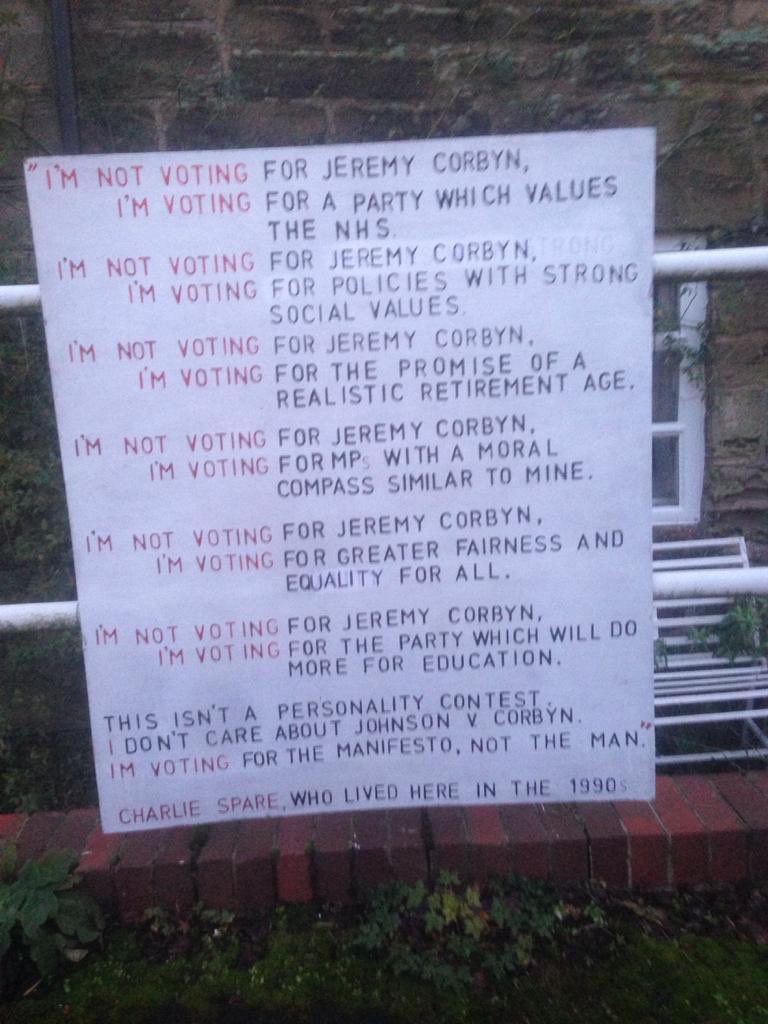 "I'M NOT VOTING FOR JEREMY CORBYN,
I'M VOTING FOR A PARTY WHICH VALUES
THE NHS.
I'M NOT VOTING FOR JEREMY CORBYN,
I'M VOTING FOR POLICIES WITH STRONG
SOCIAL VALUES.
I'M NOT VOTING FOR JEREMY CORBYN,
I'M VOTING FOR THE PROMISE OF A
REALISTIC RETIREMENT AGE.
I'M NOT VOTING FOR JEREMY CORBYN,
I'M VOTING FOR MPs WITH A MORAL
COMPASS SIMILAR TO MINE.
I'M NOT VOTING FOR JEREMY CORBYN,
I'M VOTING FOR GREATER FAIRNESS AND
EQUALITY FOR ALL.
I'M NOT VOTING FOR JEREMY CORBYN,
I'M VOTING FOR THE PARTY WHICH WILL DO
MORE FOR EDUCATION.
THIS ISN'T A PERSONALITY CONTEST.
I DON'T CARE ABOUT JOHNSON V CORBYN.
IM VOTING FOR THE MANIFESTO, NOT THE MAN."
CHARLIE SPARE, WHO LIVED HERE IN THE 1990s